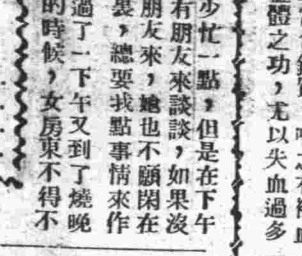 體之功，尤以失血過多
少忙一點，但是在下午
有朋友來談談，如果沒
朋友來，她也不顧閑在
裏，總要找點事情來作
過了一下午又到了燒晚
的時候，女房東不得不